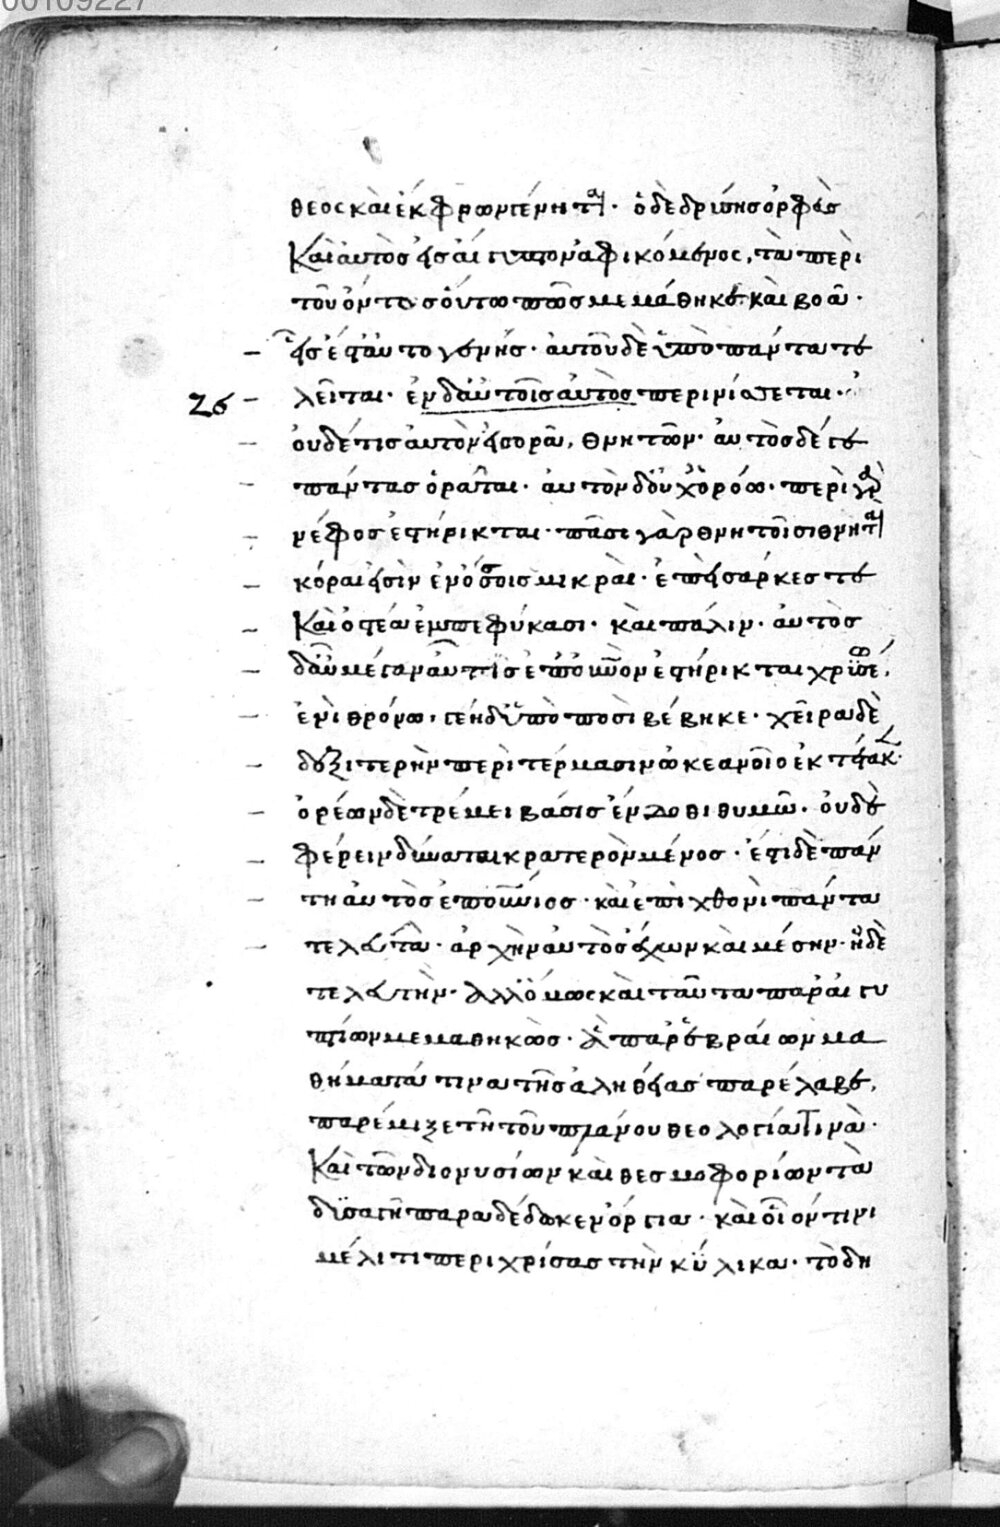 00109227
θεος καὶ ἔκφρων γένηται. ὁ δὲ δρύσης ὀρφεὺς
Καὶ αὐτὸς εἰς αἴγυπτον ἀφικόμενος, τὰ περὶ
τοῦ ὄντος οὕτω πῶς μεμάθηκε καὶ βοᾶ.
– εἷς ἔστ' αὐτογενής. αὐτοῦ δὲ ὕπο πάντα τε
26 – λεῖται. ἐν δ' αὐτοῖς αὐτὸς περινίσσεται.
– οὐδέ τις αὐτὸν εἰσορᾶ, θνητῶν. αὐτὸς δέ γε
– πάντας ὁρᾶται. αὐτὸν δ' οὐχ ὁρόω. περὶ γὰρ
– νέφος ἐστήρικται. πᾶσι γὰρ θνητοῖσι θνηταὶ
– κόραι εἰσὶν ἐν ὄσσοις μικραὶ. ἐπεὶ σάρκες τε
– Καὶ ὀστέα ἐμπεφύκασι. καὶ πάλιν. αὐτὸς
– δ' αὖ μέγαν αὖτις ἐπ' οὐνὸν ἐστήρικται χρυσέῳ
– ἐνὶ θρόνω, γέη δ' ὕπο ποσὶ βέβηκε. χεῖρα δὲ
– δεξιτερὴν περὶ τέρμασιν ὠκεανοῖο ἐκτέτακεν.
– ὀρέων δὲ τρέμει βάσις ἔνδοθι θυμῶ. οὐδὲ
– φέρειν δύναται κρατερὸν μένος. ἔστι δὲ πάν
– τη αὐτὸς ἐπουνίος. καὶ ἐπὶ χθονὶ πάντα
– τελευτᾶ. ἀρχὴν αὐτὸς ἔχων καὶ μέσην. ἠδὲ
τελευτὴν. ἀλλ' ὅμως καὶ ταῦτα παρ' αἰγυ
πτίων μεμαθηκὼς. ἢ παρ' ἑβραίων μα
θήματά τινα τῆς ἀληθείας παρέλαβε,
παρέμιξε τῆ τοῦ πλάνου θεολογία τινὰ.
Καὶ τῶν διονυσίων καὶ θεσμοφορίων τὰ
δυσαγῆ παραδέδωκεν ὄργια. καὶ οἷόν τινι
μέλιτι περιχρίσας τὴν κύλικα. τὸ δη